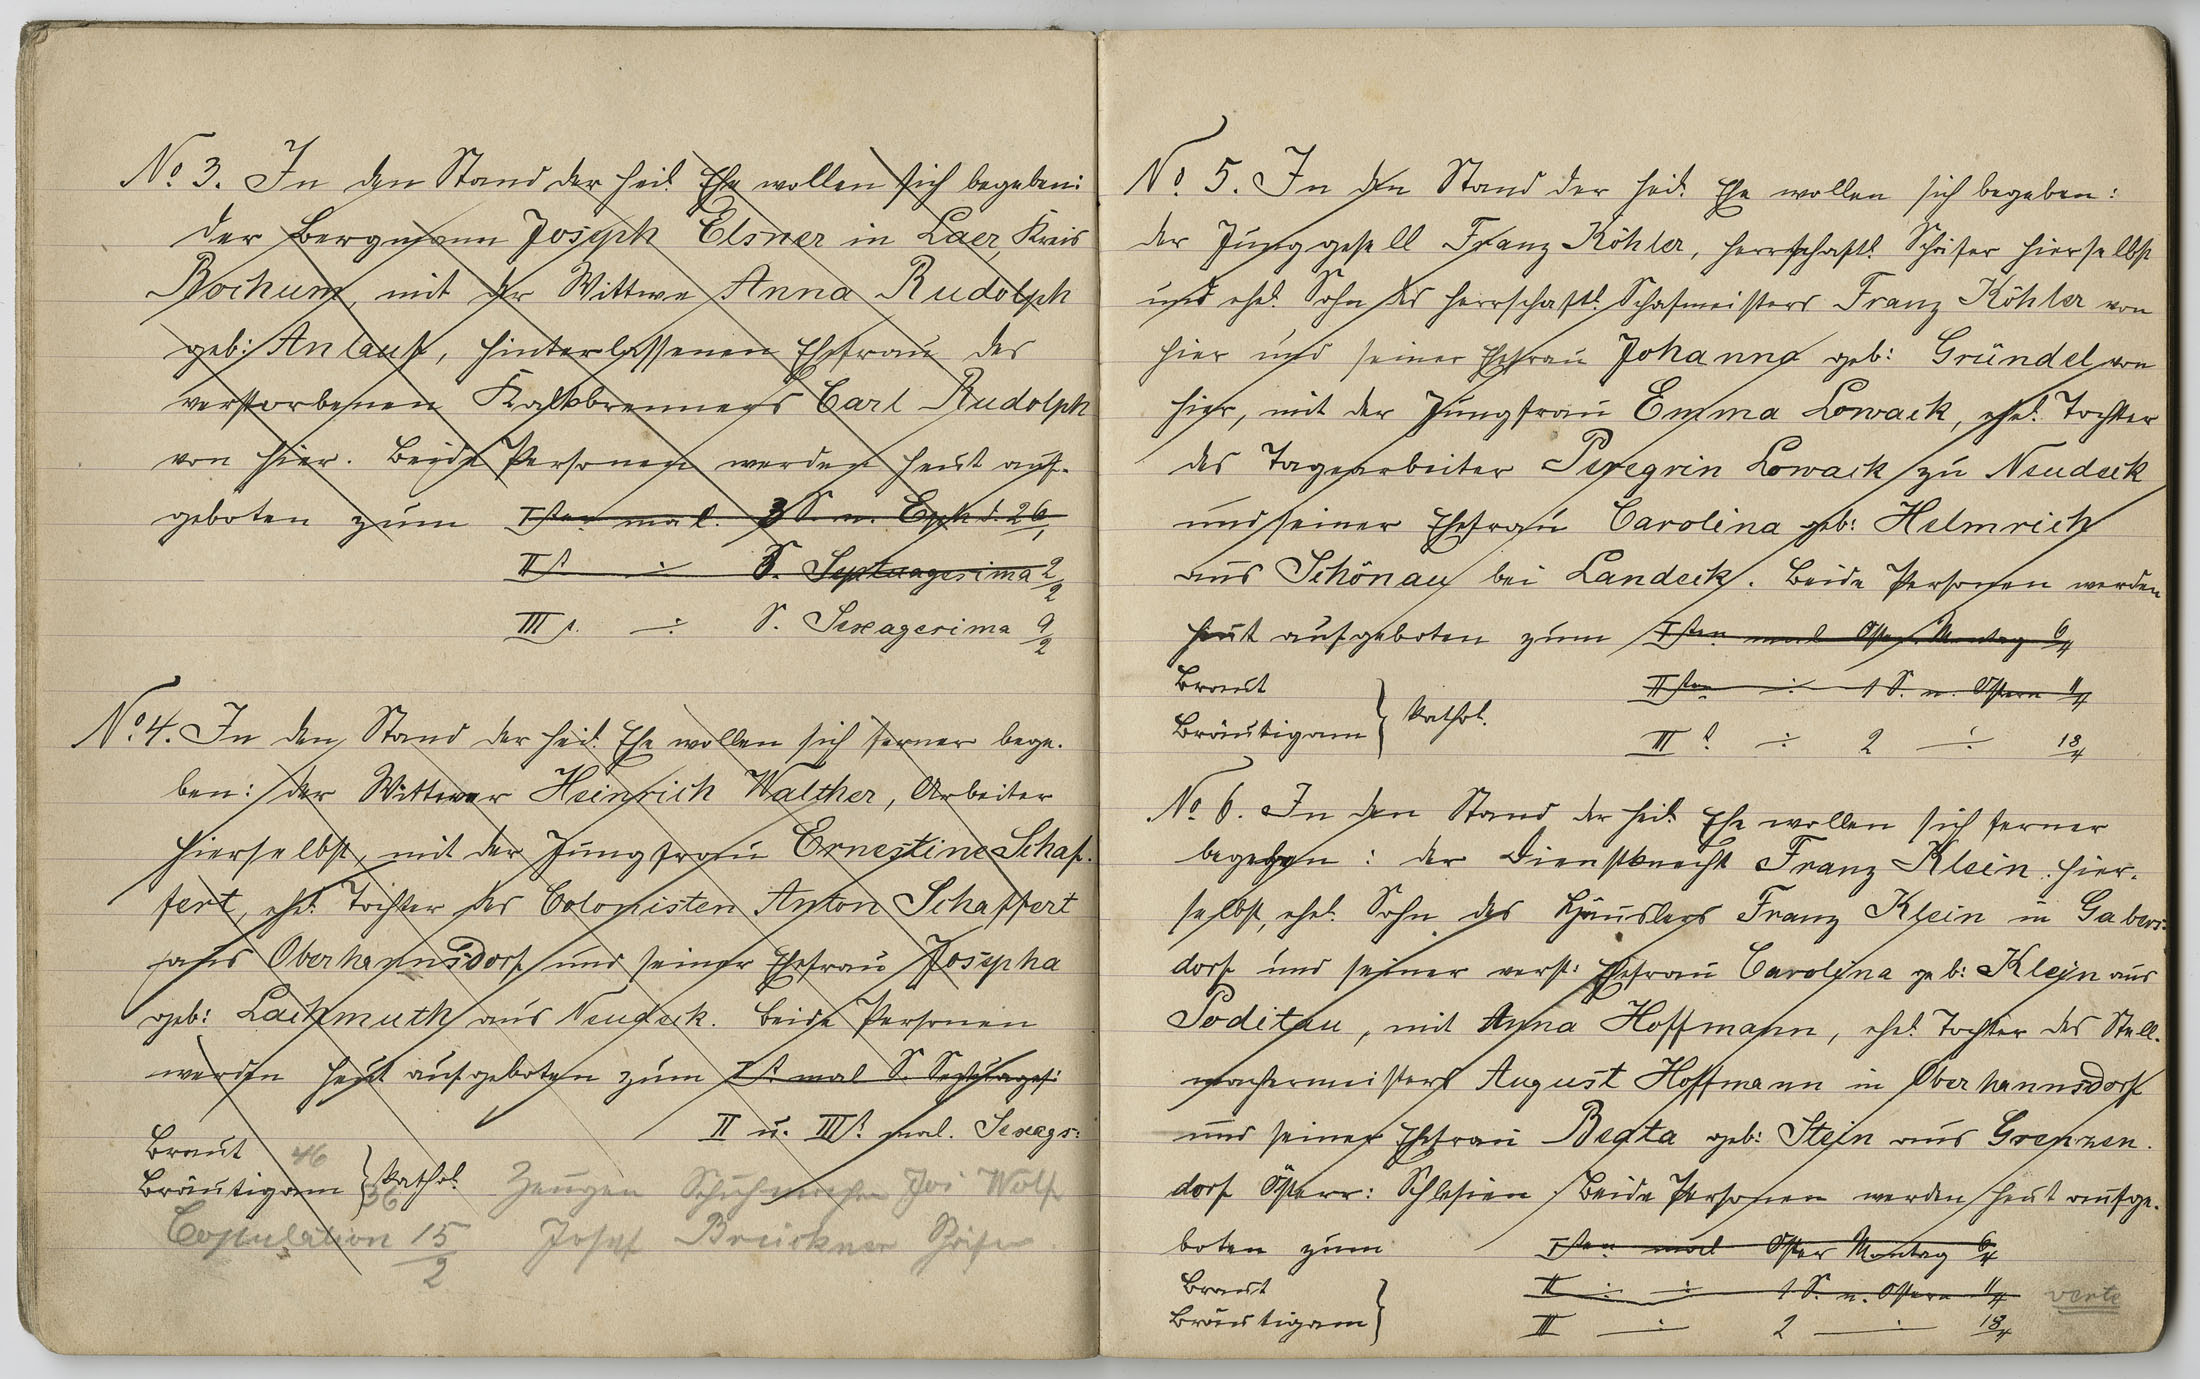 No. 3. In den Stand der heil. Ehe wollen sich begeben:
der Bergmann Joseph Elsner in Laer, Kreis
Bochum, mit der Wittwe Anna Rudolph
geb: Anlauf, hinterlassenen Ehefrau des
verstorbenen Kalkbrenners Carl Rudolph
von hier. Beide Personen werden heut auf-
geboten zum Isten mal. 3 S. n. Eph. d. 26/1
IIt. ÷ S. Septuagesima 2/2
IIIt. ÷ S. Sexagesima 9/2
No. 4. In den Stand der heil. Ehe wollen sich ferner bege-
ben: der Wittwer Heinrich Walther, Arbeiter
hierselbst, mit der Jungfrau Ernestine Schaf-
fert, ehel. Tochter des Colonisten Anton Schaffert
aus Oberhannsdorf und seiner Ehefrau Josepha
geb: Lachmuth aus Neudeck. Beide Personen
werden heut aufgeboten zum It. mal S. Septuages:
II u. IIIt. mal. Sexags:
Braut 46
Bräutigam } kathol. 36
Zeugen Schuhmacher Jos Wolf
Copulation 15/2 Josef Brückner Schäfer
No. 5. In den Stand der heil. Ehe wollen sich begeben:
der Junggesell Franz Köhler, herrschaftl. Schäfer hierselbst
und ehel. Sohn des herrschaftl. Schafmeisters Franz Köhler von
hier und seiner Ehefrau Johanna geb: Gründel von
hier, mit der Jungfrau Emma Lowack, ehel. Tochter
des Tagearbeiter Peregrin Lowack zu Neudeck
und seiner Ehefrau Carolina geb: Helmrich
aus Schönau bei Landeck. Beide Personen werden
heut aufgeboten zum Isten mal Oster Montag 6/4
Braut
IIten ÷ 1 S. n. Ostern 11/4
Bräutigam } kathol.
IIIt. ÷ 2 ÷ 18/4
No 6. In den Stand der heil. Ehe wollen sich ferner
begeben: der Dienstknecht Franz Klein hier-
selbst, ehel. Sohn des Häuslers Franz Klein in Gabers-
dorf und seiner verst: Ehefrau Carolina geb: Klein aus
Poditau, mit Anna Hoffmann, ehel. Tochter des Stell-
machermeisters August Hoffmann in Oberhannsdorf
und seiner Ehefrau Beata geb: Stein aus Grenzen-
dorf Österr: Schlesien. Beide Personen werden heut aufge-
boten zum Isten mal Oster Montag 6/4
Braut
II ÷ ÷ 1 S. n. Ostern 11/4 verte
Bräutigam }
III ÷ 2 ÷ 18/4